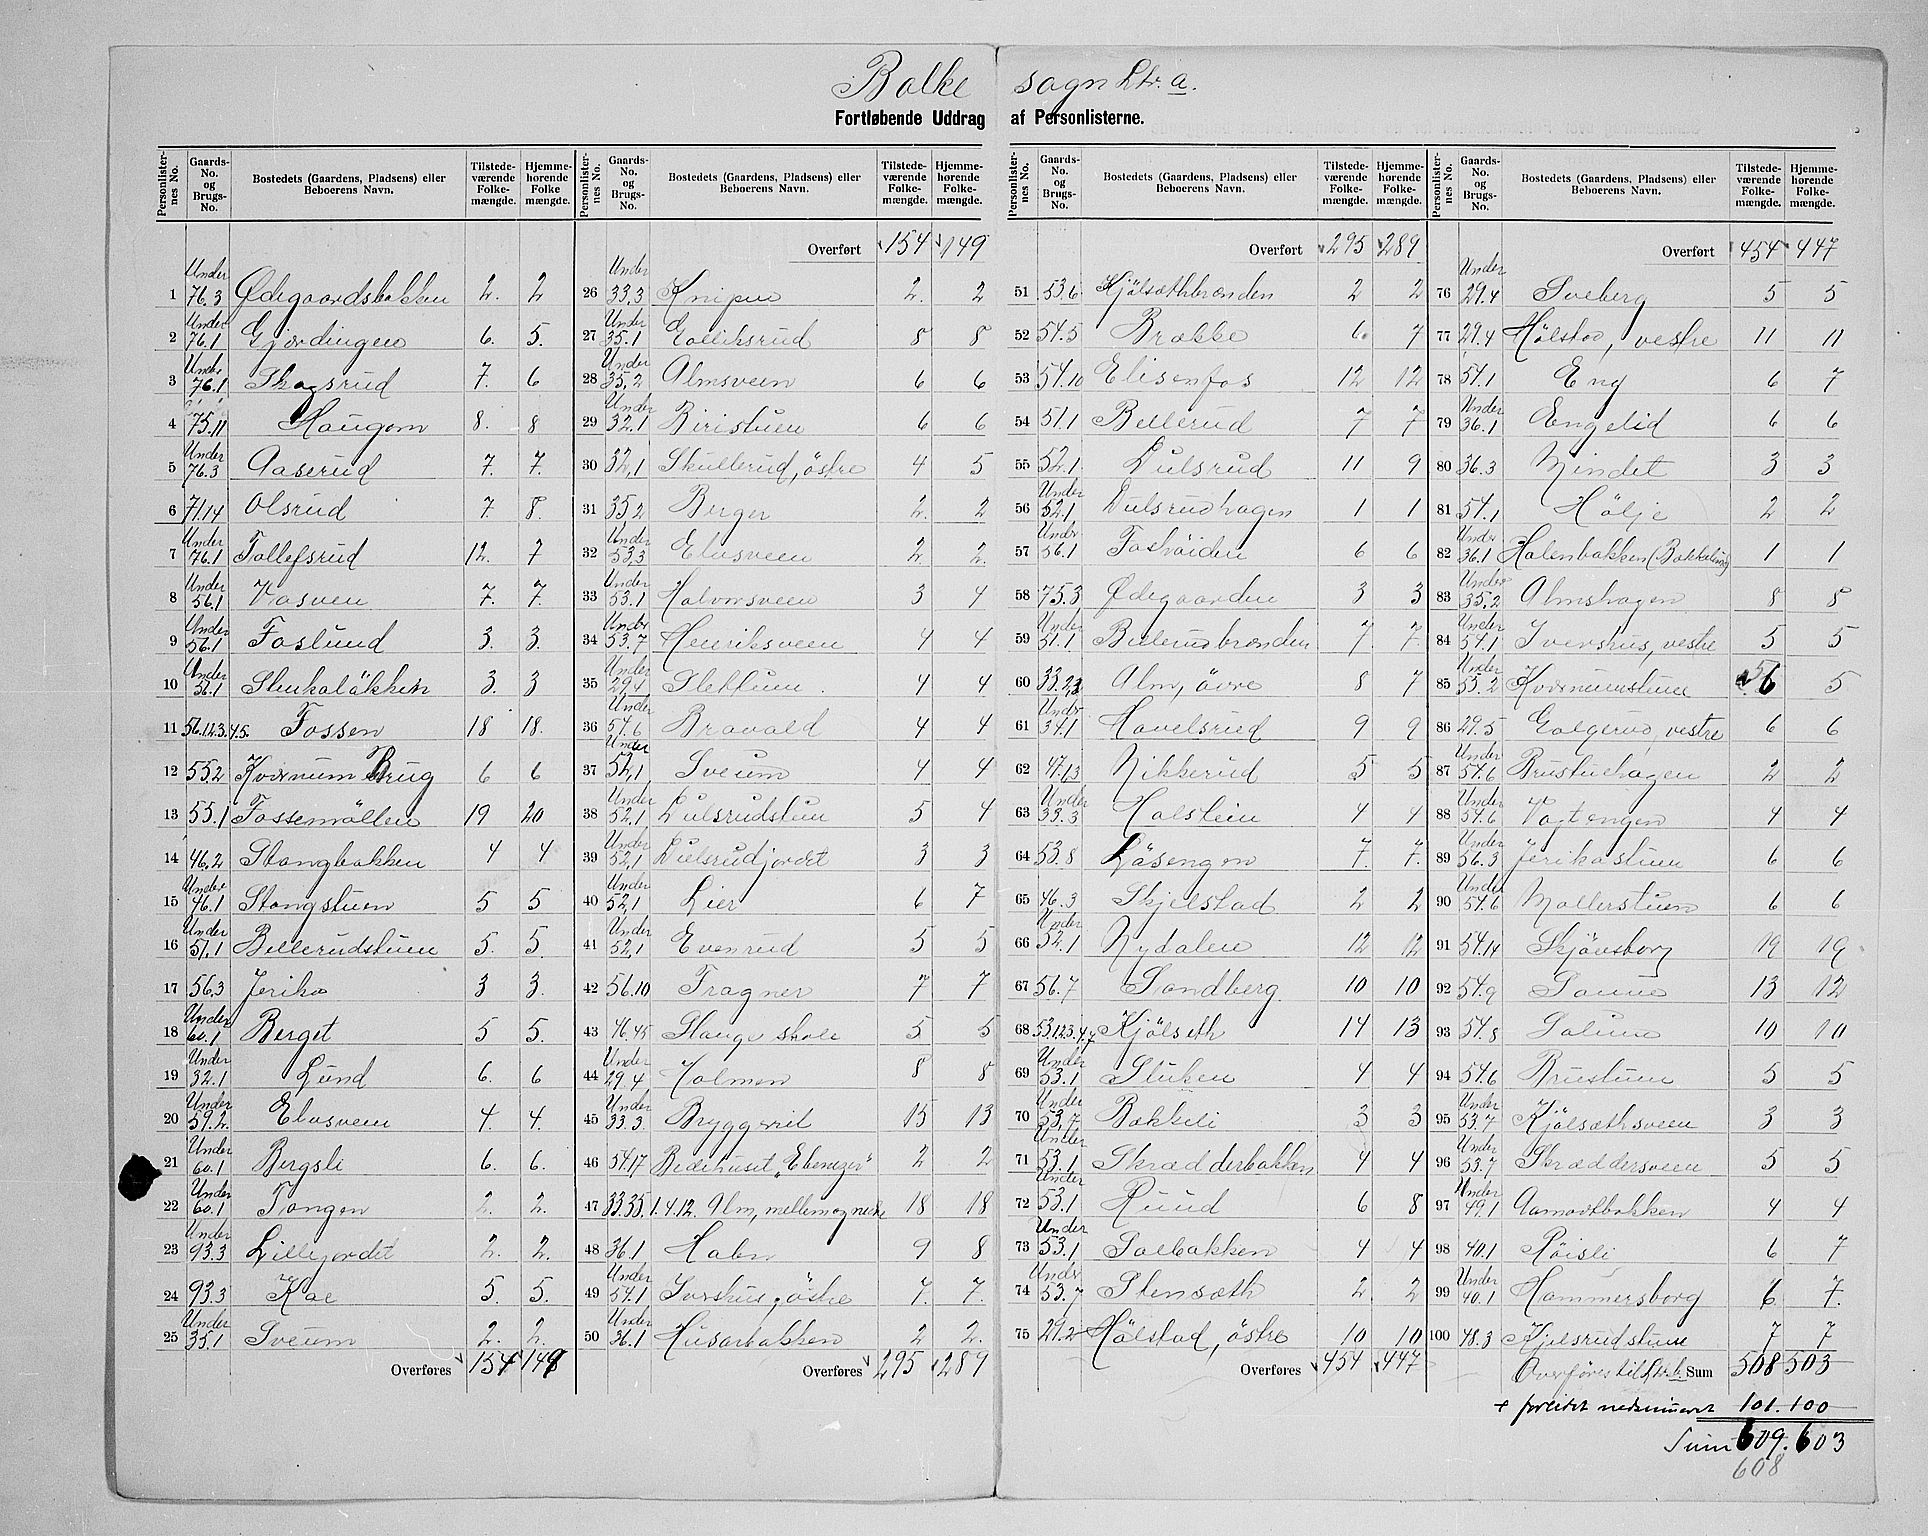 Balke sogn Ltr. a.
Fortløbende Uddrag af Personlisterne.
Personlister-nes No. Gaards-No. og Brugs-No. Bostedets (Gaardens, Pladsens) eller Beboerens Navn. Tilstede-værende Folke-mængde. Hjemme-hørende Folke mængde.
1 Under 76.3 Ødegaardsbakken 2. 2
2 Under 76.1 Gjørdingen 6. 5.
3 Under 76.1 Skogsrud 7. 6
4 75.11 Haugom 8. 8
5 Under 76.3 Aaserud 7. 7.
6 71.14 Olsrud 7. 8.
7 Under 76.1 Tollefsrud 12. 7
8 Under 56.1 Vasveen 7. 7.
9 Under 56.1 Foslund 3. 3.
10 Under 56.1 Stukaløkken 3. 3
11 56.1.2.3.4.5. Fossen 18 18.
12 55.2 Kvernum Brug 6 6
13 55.1 Fossemøllen 19 20
14 46.2 Stangbakken 4 4
15 Under 46.1 Stangstuen 5 5
16 Under 51.1 Bellerudstuen 5. 5.
17 56.3 Jeriko 3 3.
18 Under 60.1 Berget 5 5.
19 Under 32.1 Lund 6. 6
20 Under 59.2. Elvesveen 4. 4.
21 Under 60.1 Bergsli 6. 6.
22 Under 60.1 Tangen 2. 2.
23 Under 93.3 Lillejordet 2. 2.
24 93.3 Kae 5. 5.
25 Under 35.1 Sveum 2. 2.
Overføres 154 149
Personlister-nes No. Gaards-No. og Brugs-No. Bostedets (Gaardens, Pladsens) eller Beboerens Navn. Tilstede-værende Folke-mængde. Hjemme-hørende Folke-mængde.
Overført 154 149
26 Under 33.3 Knipen 2. 2
27 Under 35.1 Eolliksrud 8 8
28 Under 35.2 Almsveen 6 6
29 Under 32.1 Biristuen 6 6
30 32.1 Skullerud, østre 4 5
31 35.2 Berger 2. 2
32 Under 53.3 Elvesveen 2. 2.
33 Under 53.1 Halvorsveen 3 4
34 Under 53.7 Henriksveen 4 4
35 Under 29.4 Slettum 4 4
36 Under 54.6 Bravald 4 4
37 Under 52.1 Sveum 4 4
38 Under 52.1 Dulsrudstuen 5 4
39 Under 52.1 Dulsrudjordet 3 3
40 Under 52.1 Lier 6 7
41 Under 52.1 Evenrud 5 5
42 56.10 Fragner 7 7
43 46.45 Stange skole 5 5
44 Under 29.4 Holmen 8 8
45 Under 33.3. Byggeril 15 13
46 54.17 Bedehuset "Ebenezer" 2 2
47 33.35. 1.4.12. Alm, mellem og nedre 18 18
48 36.1 Holen 9 8
49 Under 54.1 Ivershus, østre 7. 7.
50 Under 36.1 Husarbakken 2 2.
Overføres 295 289
Personlister-nes No. Gaards-No. og Brugs-No. Bostedets (Gaardens, Pladsens) eller Beboerens Navn. Tilstede-værende Folke-mængde. Hjemme-hørende Folke-mængde.
Overført 295 289
51 53.6 Kjølsæthbrenden 2 2
52 54.5 Brække 6. 7
53 54.10 Elisenfos 12 12
54 51.1 Bellerud 7 7
55 52.1 Dulsrud 11 9
56 Under 52.1 Dulsrudhagen 1 1
57 Under 56.1 Foshøiden 6 6
58 75.3 Ødegaarden 3 3
59 Under 51.1 Bellerudbrenden 7. 7.
60 33.2,3 Alm, øvre 8 7
61 Under 34.1 Havelsrud 9 9
62 47.13 Nikkerud 5 5
63 Under 33.3 Holstein 4 4
64 53.8 Løsengen 7. 7.
65 46.3 Skjelstad 2 2
66 Under 52.1 Nydalen 12 12
67 56.7 Sandberg 10 10
68 53.1.2.3.4.7 Kjølseth 14 13
69 Under 53.1 Stuken 4 4
70 Under 53.7 Bakkeli 3 3
71 Under 53.1 Skrædderbakken 4 4
72 Under 53.1 Ruud 6 8
73 Under 53.1 Solbakken 4 4
74 Under 53.7 Stensæth 2 2
75 29.2 Hølstad, østre 10 10
Overføres 454 447
Personlister-nes No. Gaards-No. og Brugs-No. Bostedets (Gaardens, Pladsens) eller Beboerens Navn. Tilstede-værende Folke-mængde. Hjemme-hørende Folke-mængde.
Overført 454 447
76 Under 29.4 Sveberg 5 5
77 29.4 Hølstad, vestre 11 11
78 54.1 Eng 6 7
79 Under 36.1 Engelid 6 6
80 36.3 Mindet 3 3
81 54.1 Hølje 2 2
82 Under 36.1 Holenbakken (Bakkeliug) 1 1
83 Under 35.2 Almshagen 8 8
84 Under 54.1 Ivershus, vestre 5 5
85 Under 55.2 Kvernumstuen 6 5
86 29.5 Galgerud, vestre 6 6
87 Under 54.6 Brustuehagen 2 2
88 Under 54.6 Vostengen 4 4
89 Under 56.3 Jerikostuen 6 6
90 Under 54.6 Møllerstuen 6 6
91 54.14 Skjønsborg 19 19
92 54.9 Sanne 13 12
93 54.8 Solum 10 10
94 54.6 Brustuen 5 5
95 Under 53.7 Kjølsæthsveen 3 3
96 Under 53.7 Skræddersveen 5 5
97 Under 49.1 Aamodtbakken 4 4
98 40.1 Røisli 6 7
99 Under 40.1 Hammersborg 6 7.
100 48.3 Kjelsrudstuen 7 7
Overføres til Ltr. b. Sum 508 503
+ foreidet nedsumeret 101. 100
Sum 609. 603
608